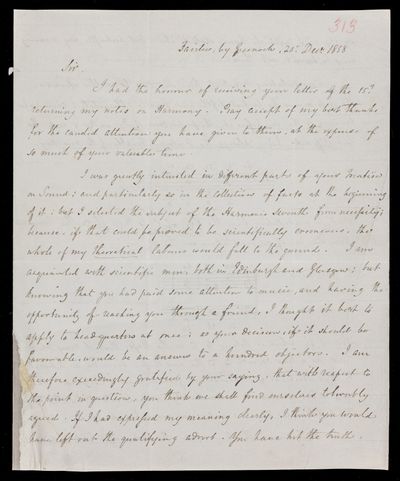 313
Fairlie, by Greenock, 20th Decr. 1858
Sir.
I had the honour of receiving your letter of the 15th
returning my notes on Harmony. Pray accept of my best thanks
for the candid attention you have given to them, at the expense of
so much of your valuable time
I was greatly interested in different parts of your Treatise
on Sound; and particularly so in the collection of facts at the beginning
of it: but I selected the subject of the Harmonic Seventh from necessity;
because, if that could be proved to be scientifically erroneous, the
whole of my theoretical labour would fall to the ground. I am
acquainted with scientific men, both in Edinburgh and Glasgow; but
knowing that you had paid some attention to music, and having the
opportunity of reaching you through a friend, I thought it best to
apply to head quarters at once: as your decision, if it should be
favourable, would be an answer to a hundred objectors. I am
therefore exceedingly gratified by your saying, that with respect to
the point in question, you think we shall find ourselves tolerably
agreed. If I had expressed my meaning clearly, I think you would
have left out the qualifying adverb. You have hit the truth